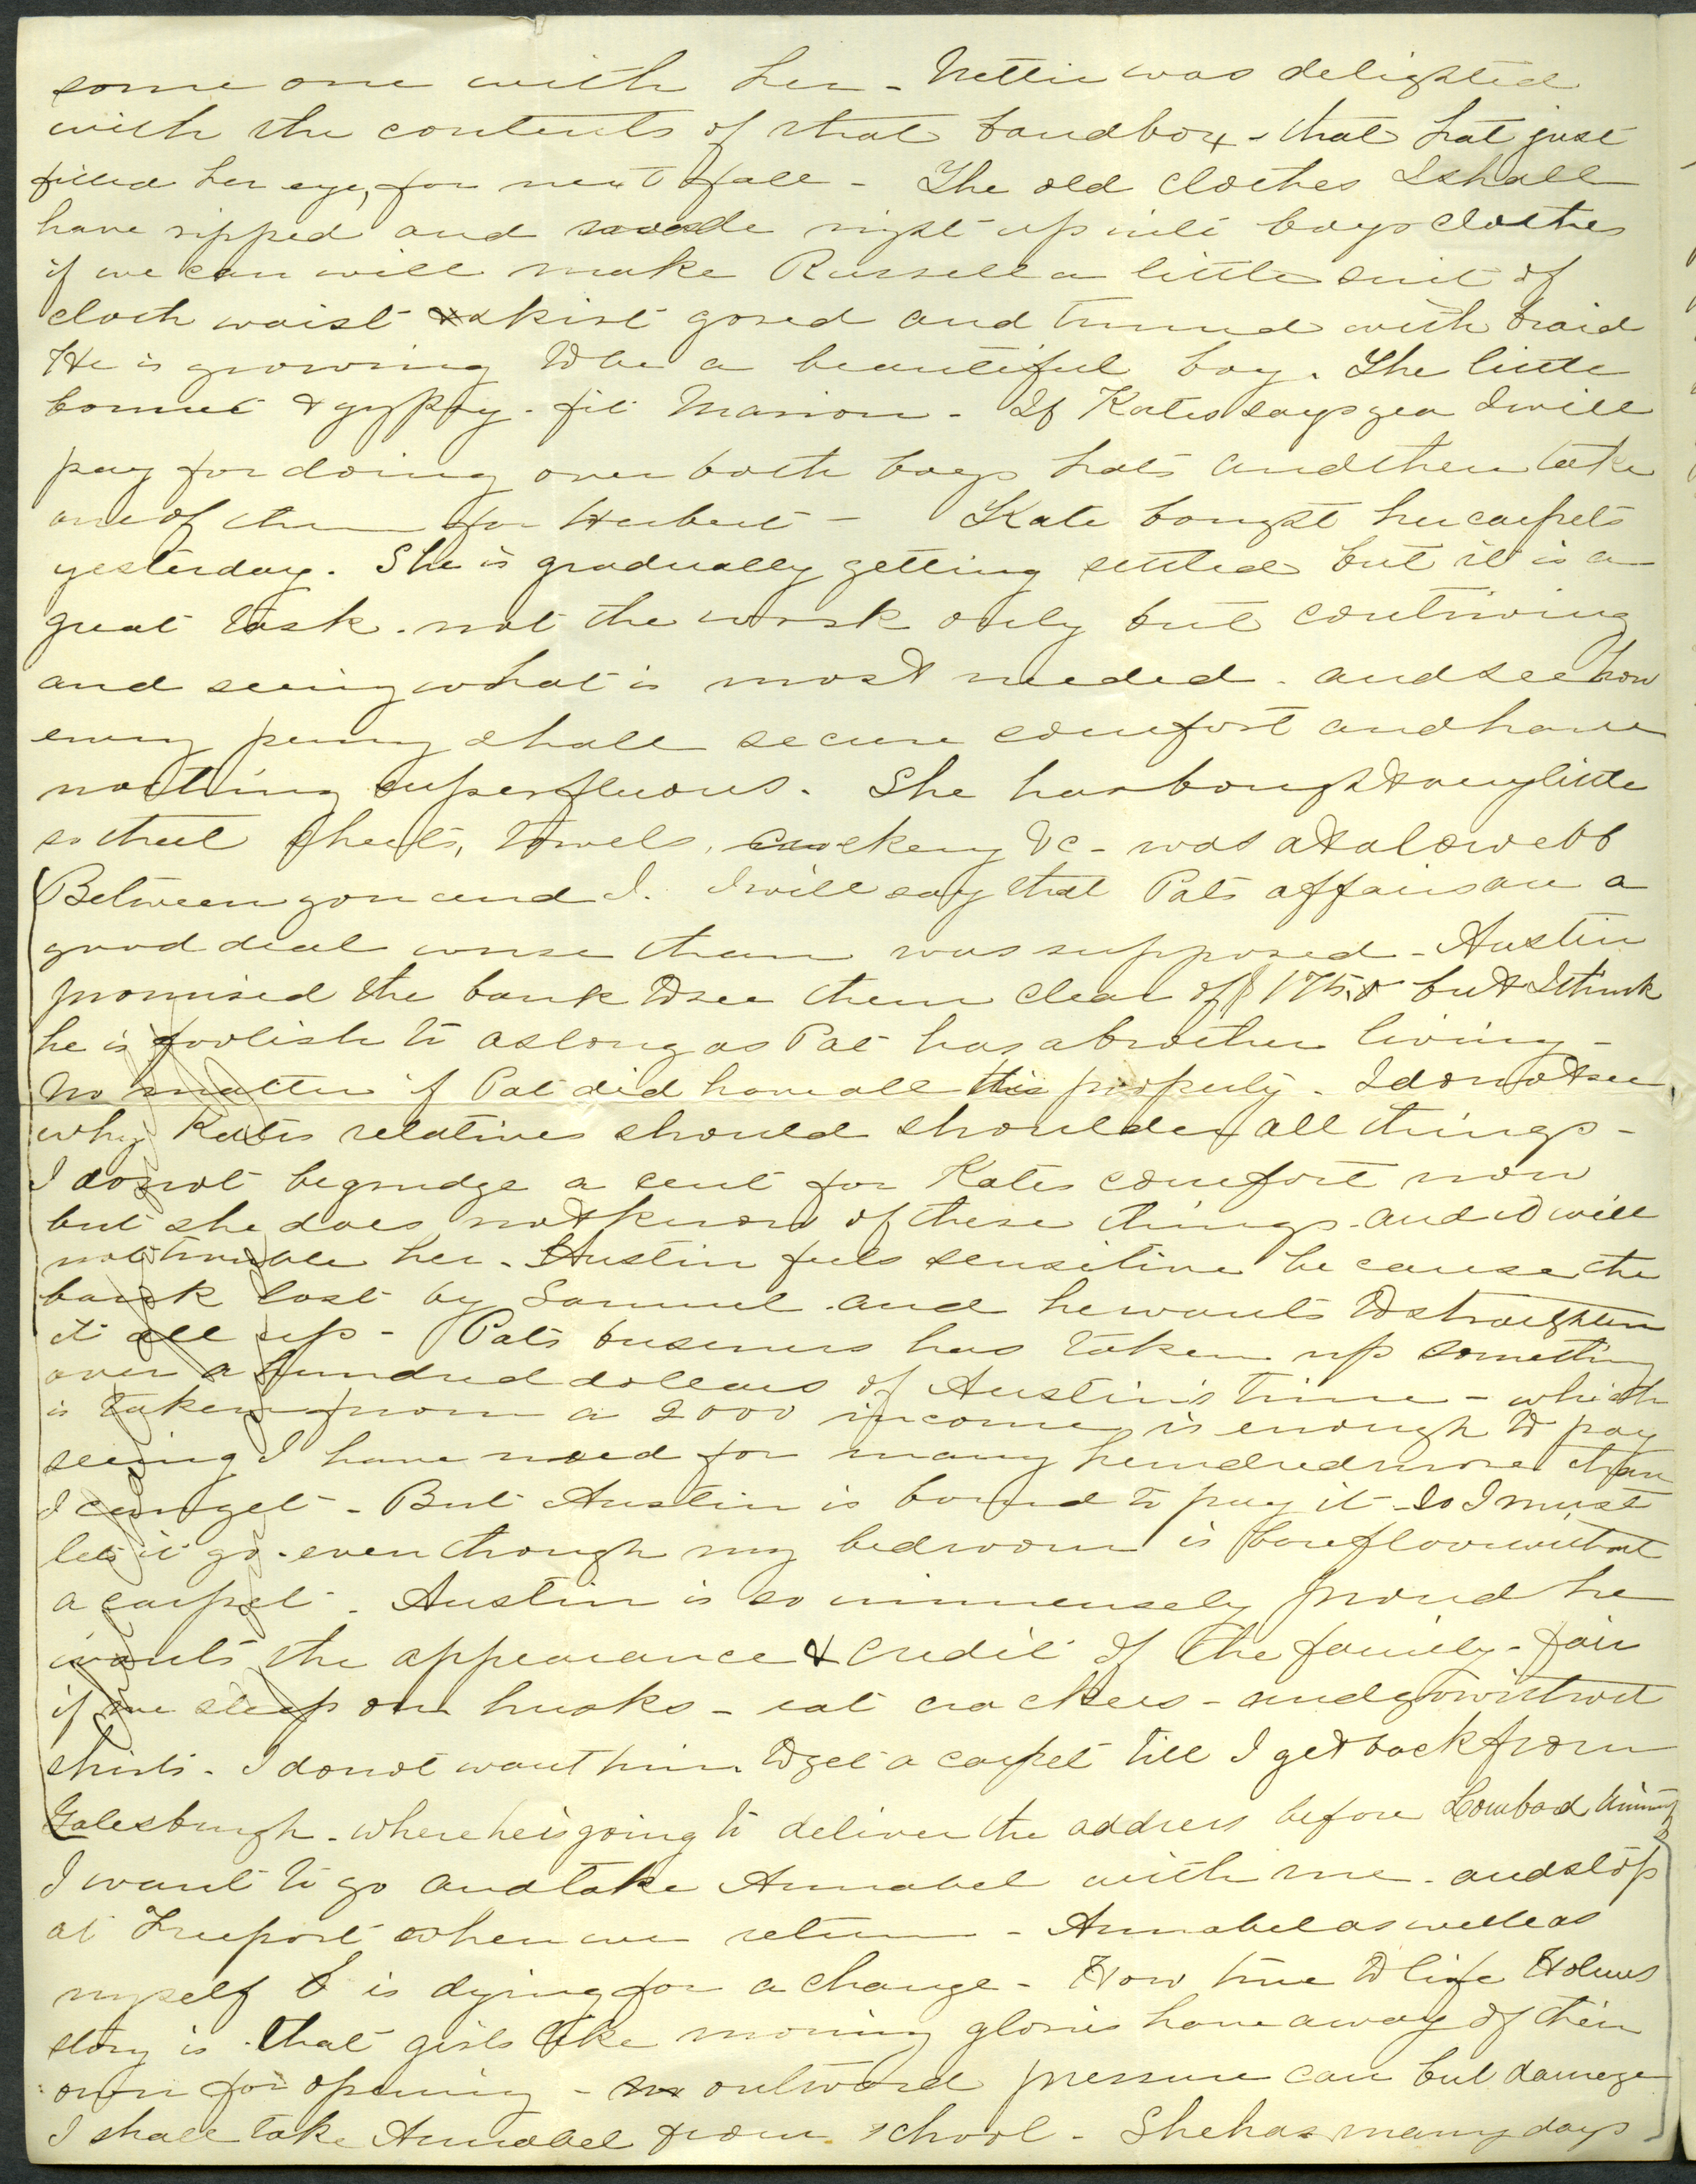 some one with her - Nettie was delighted
with the contents of that bandbox - that hat just
filled her eye, for next fall - The old clothes I shall
have ripped and made right up into boys clothes
if we can will make Russell a little suit of
cloth waist & skirt gored and trimmed with braid
He is growing to be a beautiful boy. The little
bonnet & gypsy - fit Marion - If Kate says yea I will
pay for doing over both boys hats and then take
one of them for Herbert - Kate bought her carpets
yesterday. She is gradually getting settled but it is a
great task. not the work only but contriving
and seeing what is most needed. and see how
every penny shall secure comfort and have
nothing superfluous. She has bought very little
so that sheets, towels, crockery &c - was at a low ebb
Between you and I. I will say that Pats affairs are a
good deal worse than was supposed - Austin
promised the bank to see them clear of $1750 but I think
he is foolish to as long as Pat has a brother living -
No matter if Pat did have all this property. I do not see
why Kates relatives should shoulder all things -
I do not begrudge a cent for Kates comfort now
but she does not know of these things. and it will
not trouble her. Austin feels sensitive because the
bank lost by Samuel. and he wants to straighten
it all up - Pats buseness has taken up something
over a hundred dollars of Austin's time - which
is taken from a 2000 income is enough to pay
seeing I have need for many hundred more than
I can get - But Austin is bound to pay it - so I must
let it go - even though my bedroom is bare floor without
a carpet. Austin is so immensely proud he
wants the appearance & credit of the family - fair
if we sleep on husks - eat crackers - and go without
shirts - I do not want him to get a carpet till I get back from
Galesburgh - where he is going to deliver the address before Lombard
I want to go and take Annabel with me. and stop
at Freeport when we return - Annabel as well as
myself is dying for a change - How true to life Holmes
story is that girls like morning glories have a way of their
own for opening - outward pressure can but damage
I shall take Annabel from school - She has many days